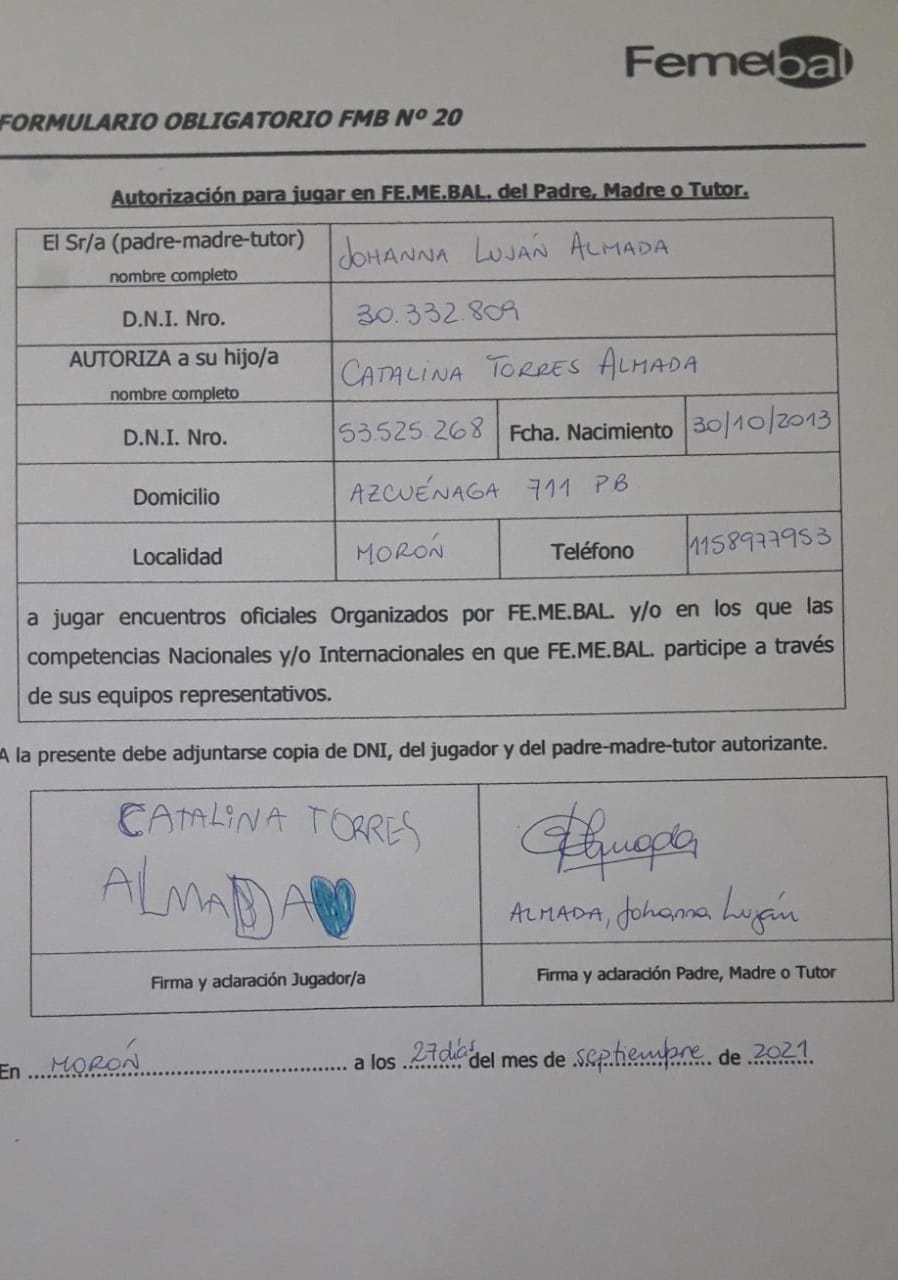 Femebal
FORMULARIO OBLIGATORIO FMB Nº 20
Autorización para jugar en FE.ME.BAL. del Padre, Madre o Tutor.
El Sr/a (padre-madre-tutor) JOHANNA LUJÁN ALMADA
nombre completo
D.N.I. Nro. 30.332.809
AUTORIZA a su hijo/a CATALINA TORRES ALMADA
nombre completo
D.N.I. Nro. 53.525.268 Fcha. Nacimiento 30/10/2013
Domicilio AZCUÉNAGA 711 PB
Localidad MORÓN Teléfono 1158977953
a jugar encuentros oficiales Organizados por FE.ME.BAL. y/o en los que las
competencias Nacionales y/o Internacionales en que FE.ME.BAL. participe a través
de sus equipos representativos.
A la presente debe adjuntarse copia de DNI, del jugador y del padre-madre-tutor autorizante.
CATALINA TORRES
ALMADA
Almada
ALMADA, Johanna Luján
Firma y aclaración Jugador/a
Firma y aclaración Padre, Madre o Tutor
En MORÓN a los 27 días del mes de septiembre de 2021